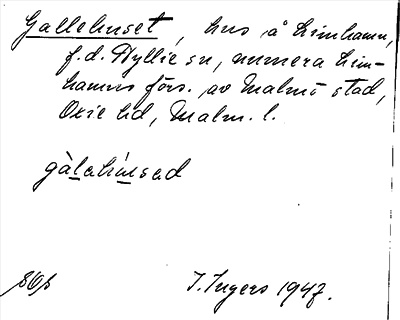 Gallehuset, hus å Limhamn,
f.d. Hyllie sn, numera Lim-
hamns förs. av Malmö stad,
Oxie hd, Malm. l.
gàlahúsad
I. Ingers 1947.